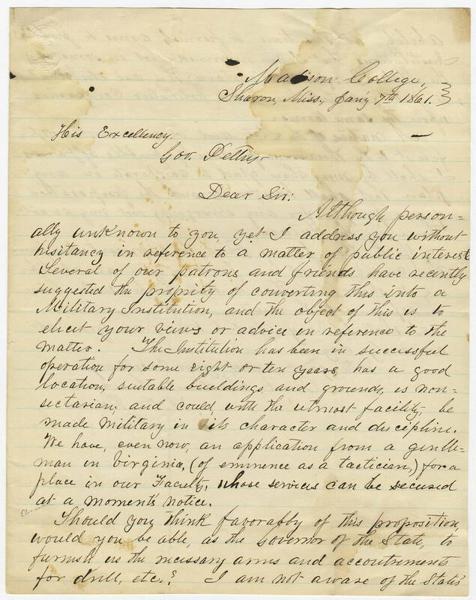 Madison College,
Sharon, Miss, Jan'y 7th 1861.
His Excellency.
Gov. Pettus
Dear Sir:
Although person-
ally unknown to you, yet I address you without
hesitancy in reference to a matter of public interest
Several of our patrons and friends have recently
suggested the propriety of converting this into a
Military Institution, and the object of this is to
elicit your views or advice in reference to the
matter. The Institution has been in successful
operation for some eight or ten years, has a good
location, suitable buildings and grounds, is non-
sectarian, and could, with the utmost facility, be
made military in its character and discipline.
We have, even now, an application from a gentle-
man in Virginia, (of eminence as a tactician,) for a
place in our Faculty, whose services can be secured
at a moment's notice.
Should you, think favorably of this proposition,
would you be able, as the Governor of the State, to
furnish us the necessary arms and accoutrements
for drill, etc.? I am not aware of the State's